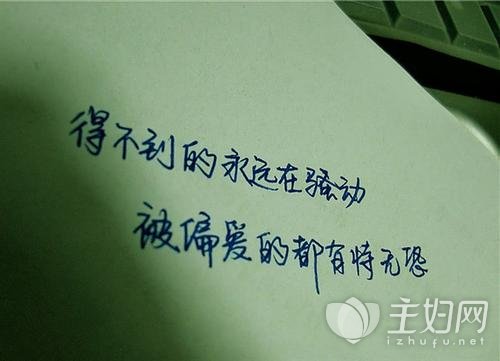 得不到的永远在骚动
被偏爱的都有恃无恐
主妇网
izhufu.net